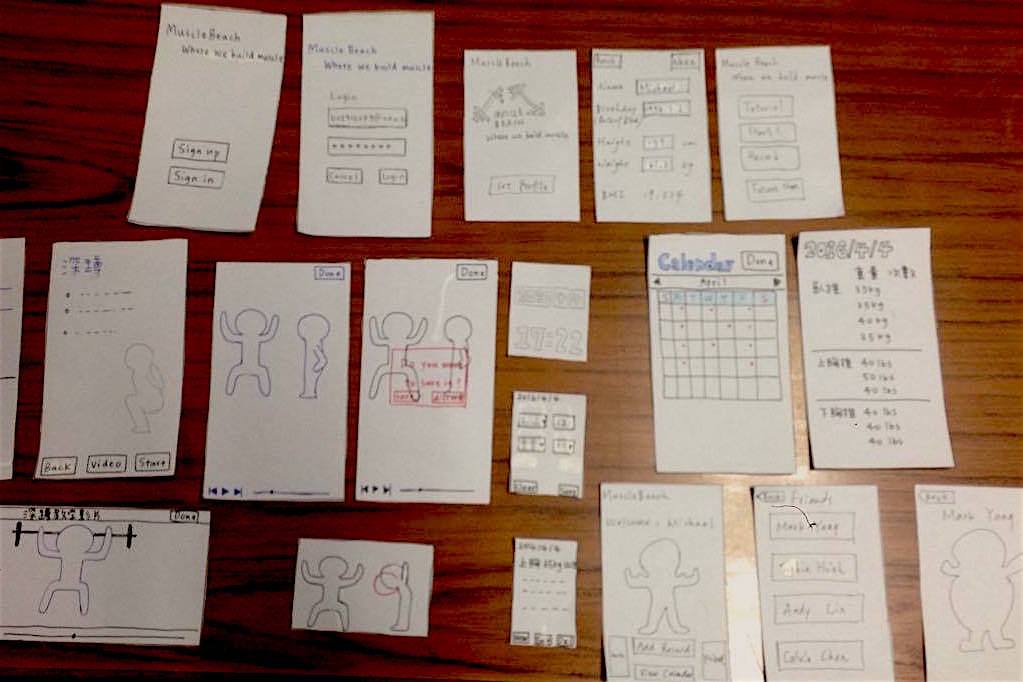 Muscle Beach
Where we build muscle
Sign up
Sign in
Muscle Beach
Where we build muscle
Login
Cancel
Login
Muscle Beach
Where we build muscle
Set Profile
Back
Name
Michael
Birthday
Height
cm
Weight
kg
BMI
Muscle Beach
Where we build muscle
Tutorial
Record
深蹲
Back
Video
Start
Done
Done
Do you want
to save it?
17:22
2016/4/4
Calendar
Done
April
S M T W T F S
2016/4/4
重量 次數
臥推 35kg
35kg
40kg
35kg
上胸推 40 lbs
50 lbs
40 lbs
下胸推 40 lbs
40 lbs
40 lbs
深蹲教學影片
Done
2016/4/4
上胸
Muscle Beach
Welcome, Michael
Add Record
View Calendar
Friends
Mark Yang
Andy Lin
Calvin Chen
Back
Mark Yang